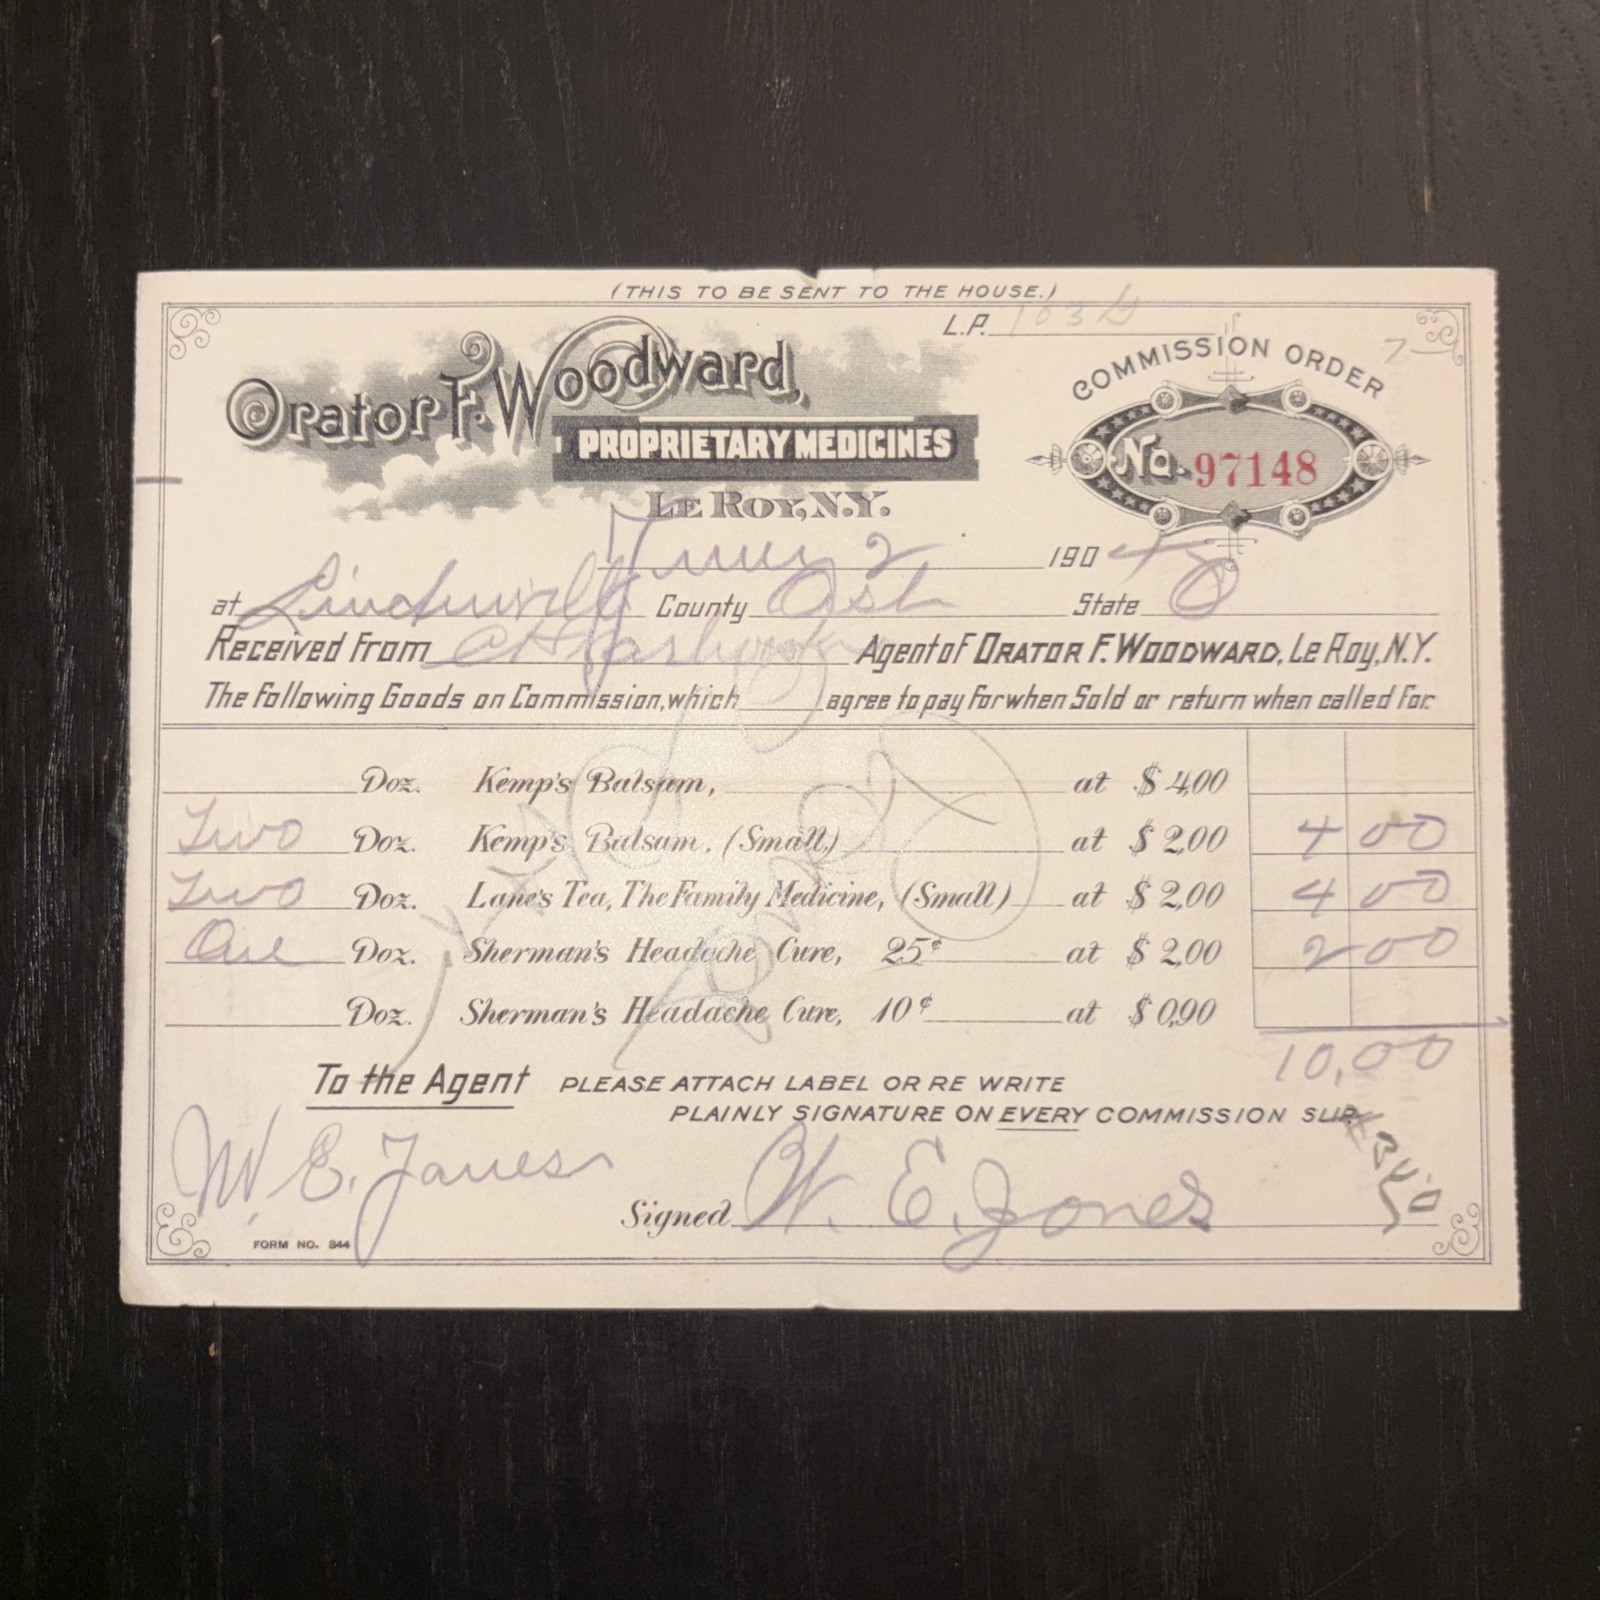 (THIS TO BE SENT TO THE HOUSE.)
L.P. 163
Orator F. Woodward,
PROPRIETARY MEDICINES
LE ROY, N.Y.
COMMISSION ORDER
No. 97148
2 190
at County State O
Received from C H Agent of ORATOR F. WOODWARD, Le Roy, N.Y.
The following Goods on Commission, which agree to pay for when Sold or return when called for.
Doz. Kemp's Balsam, at $4.00
Two Doz. Kemp's Balsam. (Small) at $2.00 4 00
Two Doz. Lane's Tea, The Family Medicine, (Small) at $2.00 4 00
One Doz. Sherman's Headache Cure, 25¢ at $2.00 2 00
Doz. Sherman's Headache Cure, 10¢ at $0.90
10,00
To the Agent PLEASE ATTACH LABEL OR RE WRITE
PLAINLY SIGNATURE ON EVERY COMMISSION SLIP.
W. E. Jones
Signed W. E. Jones
FORM NO. 344